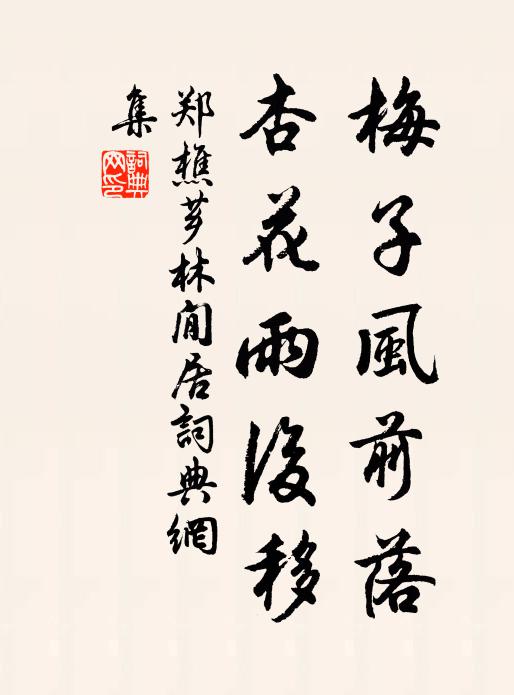 梅子風前落
杏花雨後移
郑樵芗林閒居詞典網
集
詞典網印